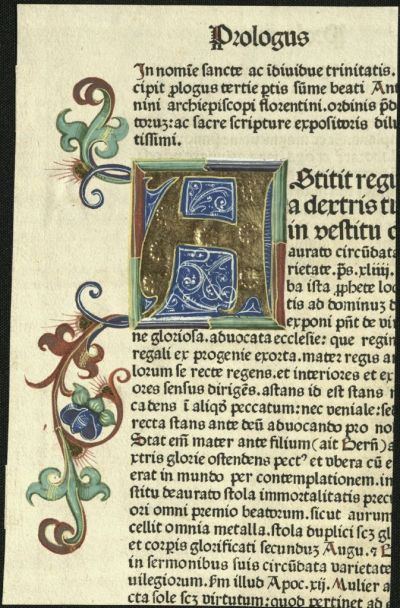 Prologus
In nomīe sancte ac īdiuidue trinitatis.
cipit ꝓlogus tertie ꝑtis sūme beati Ant
nini archiepiscopi florentini.ordinis p̄d
toruꝫ:ac sacre scripture expositoris dilu
tissimi.
AStitit regi
a dextris tu
in vestitu d
aurato circūdata
rietate.ps.xliiij.
ba ista ꝓphete loc
tis ad dominuꝫ d
exponi pn̄t de vir
ne gloriosa.aduocata ecclesie: que regin
regali ex progenie exorta.mater regis an
lorum se recte regens.et interiores et ex
ores sensus dirigēs.astans id est stans r
cadens ī aliqd̄ peccatum:nec veniale:sed
recta stans ante deū aduocando pro no
Stat em̄ mater ante filium (ait Bern̄) a
xtris glorie ostendens pectꝰ et vbera cū e
erat in mundo per contemplationem.in
stitu deaurato stola immortalitatis preci
ori omni premio beatorum.sicut aurum
cellit omnia metalla.stola duplici scꝫ gl
et corpis glorificati secunduꝫ Augu.⁊ B
in sermonibus suis circūdata varietate
uilegiorum.Fm illud Apoc.xij. Mulier a
cta sole scꝫ virtutum:quod pertinet ad e